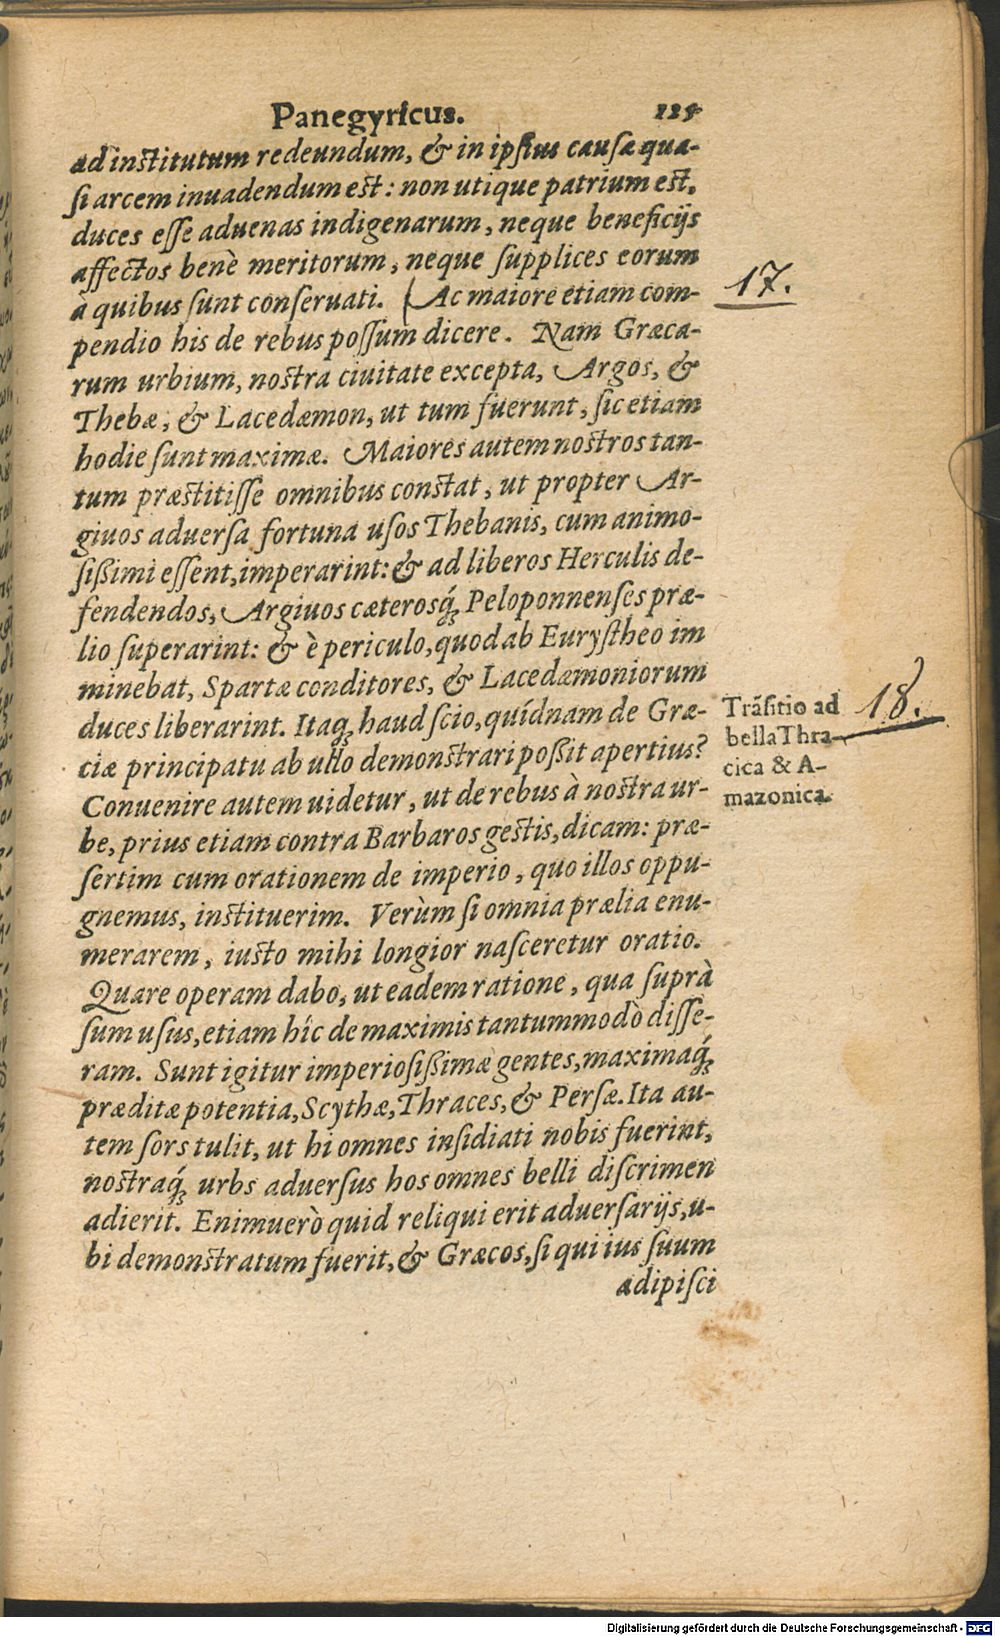 Panegyricus. 125
ad institutum redeundum, & in ipsius causæ qua-
si arcem inuadendum est: non utique patrium est,
duces esse aduenas indigenarum, neque beneficijs
affectos benè meritorum, neque supplices eorum
à quibus sunt conseruati. Ac maiore etiam com-
17.
pendio his de rebus possum dicere. Nam Græca-
rum urbium, nostra ciuitate excepta, Argos, &
Thebæ, & Lacedæmon, ut tum fuerunt, sic etiam
hodie sunt maximæ. Maiores autem nostros tan-
tum præstitisse omnibus constat, ut propter Ar-
giuos aduersa fortuna usos Thebanis, cum animo-
sißimi essent, imperarint: & ad liberos Herculis de-
fendendos, Argiuos cæterosq́; Peloponnenses præ-
lio superarint: & è periculo, quod ab Eurystheo im
minebat, Spartæ conditores, & Lacedæmoniorum
duces liberarint. Itaq; haud scio, quídnam de Græ-
ciæ principatu ab ullo demonstrari poßit apertius?
Trãsitio ad
bella Thra-
cica & A-
mazonica.
18.
Conuenire autem uidetur, ut de rebus à nostra ur-
be, prius etiam contra Barbaros gestis, dicam: præ-
sertim cum orationem de imperio, quo illos oppu-
gnemus, instituerim. Verùm si omnia prælia enu-
merarem, iusto mihi longior nasceretur oratio.
Quare operam dabo, ut eadem ratione, qua suprà
sum usus, etiam hîc de maximis tantummodò disse-
ram. Sunt igitur imperiosißimæ gentes, maximaq́;
præditæ potentia, Scythæ, Thraces, & Persæ. Ita au-
tem sors tulit, ut hi omnes insidiati nobis fuerint,
nostraq́; urbs aduersus hos omnes belli discrimen
adierit. Enimuerò quid reliqui erit aduersarijs, u-
bi demonstratum fuerit, & Græcos, si qui ius suum
adipisci
Digitalisierung gefördert durch die Deutsche Forschungsgemeinschaft - DFG